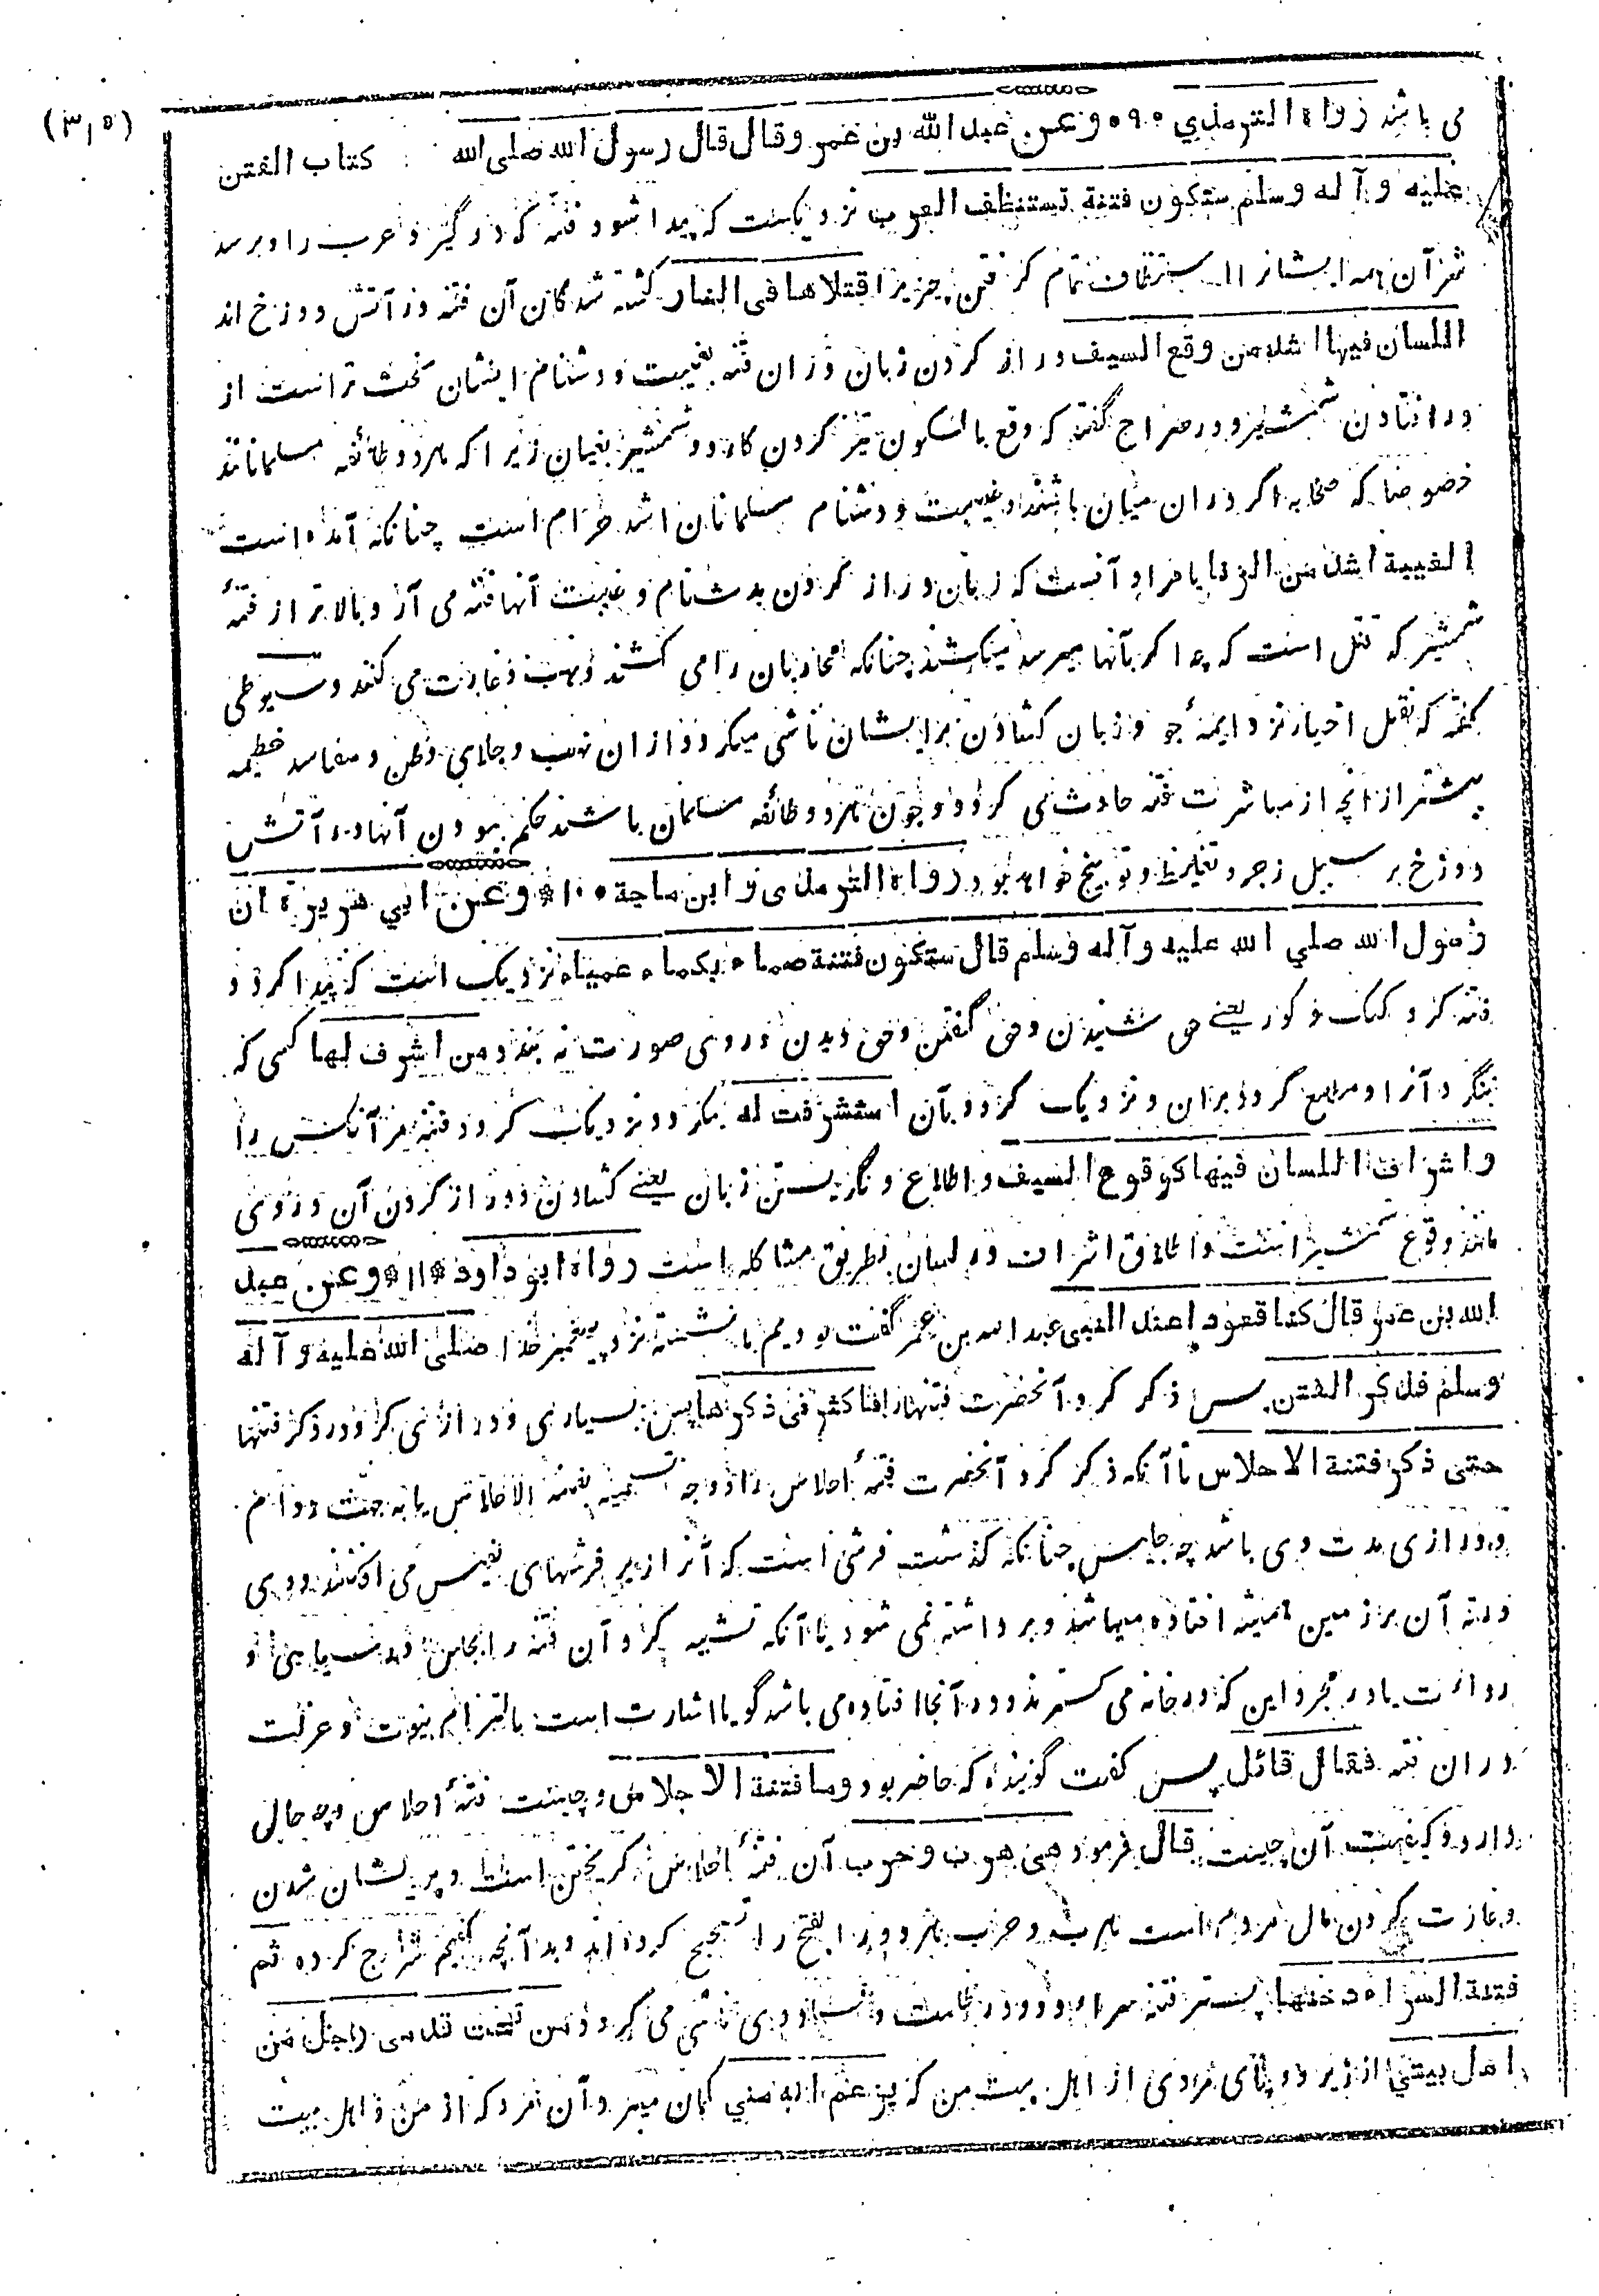 (۳۰۵)
کتاب الفتن
می باشد رواه الترمذي ٩ وعن عبد الله بن عمرو قال قال رسول الله صلی الله
علیه وآله وسلم ستکون فتنة تستنظف العرب نزدیکست که پیدا شود فتنه که در گیرد عرب را و برسد
شر آن همه ایشانرا استنظاف تمام گرفتن چیزیرا قتلاها فی النار کشته شدگان آن فتنه در آتش دوزخ اند
اللسان فیها اشد من وقع السیف دراز کردن زبان در آن فتنه بغیبت و دشنام ایشان سخت تر است از
در افتادن شمشیر و در صراح گفته که وقع بالسکون تیز کردن کارد و شمشیر بفسان زیرا که هر دو طائفه مسلمانانند
خصوصا که صحابه اگر در ان میان باشند و غیبت و دشنام مسلمانان اشد حرام است چنانکه آمده است
الغیبة اشد من الزنا یا مراد آنست که زبان دراز کردن بدشنام و غیبت آنها فتنه می آرد بالاتر از فتنهٔ
شمشیر که قتل است که چه اگر بآنها میرسد میکشند چنانکه محاربان را می کشند و نهب و غارت می کنند و سیوطی
گفته که بنقل اخبار نزد ایمهٔ جور و زبان کشادن برایشان ناشی میگردد از ان نهب و جلای وطن و مفاسد عظیمه
بیشتر از آنچه از مباشرت فتنه حادث می گردد و چون هر دو طائفه مسلمان باشند حکم ببودن آنها در آتش
دوزخ بر سبیل زجر و تغلیظ و توبیخ خواهد بود رواه الترمذی و ابن ماجة ۱۰ * وعن ابي هریرة ان
رسول الله صلي الله علیه وآله وسلم قال ستکون فتنة صماء بکماء عمیاء نزدیک است که پیدا گردد
فتنه کر و گنگ و کور یعنے حق شنیدن و حق گفتن و حق دیدن در وی صورت نه بندد من اشرف لها کسی که
بنگرد آنرا و مطلع گردد بران و نزدیک گردد بآن استشرفت له بنگرد و نزدیک گردد فتنه مر آنکس را
واشراف اللسان فیها کوقوع السیف و اطلاع و نگریستن زبان یعنے کشادن و دراز کردن آن در وی
مانند وقوع شمشیر است و اطلاق اشراف در لسان بطریق مشاکله است رواه ابو داود * ۱۱ * وعن عبد
الله بن عمر قال کنا قعودا عند النبی عبد الله بن عمر گفت بودیم ما نشسته نزد پیغمبر خدا صلی الله علیه وآله
وسلم فذکر الفتن پس ذکر کرد آنحضرت فتنهارا فاکثر فی ذکرها پس بسیاری و درازی کرد در ذکر فتنها
حتی ذکر فتنة الاحلاس تا آنکه ذکر کرد آنحضرت فتنهٔ احلاس را و وجه تسمیه بفتنة الاحلاس یا به جهت دوام
و درازی مدت وی باشد چه حلس چنانکه گذشت فرشی است که آنرا زیر فرشهای نفیس می افکنند و وی
در ته آن بر زمین همیشه افتاده میباشد و برداشته نمی شود یا آنکه تشبیه کرد آن فتنه را بحلس در سیاهی و
رداءت یا در مجرد این که در خانه می گسترند و در آنجا افتاده می باشد گویا اشارت است بالتزام بیوت و عزلت
در ان فتنه فقال قائل پس گفت گوینده که حاضر بود وما فتنة الاحلاس و چیست فتنهٔ احلاس و چه حال
دارد و کیفیت آن چیست قال فرمود هی هرب وحرب آن فتنهٔ احلاس گریختن است و پریشان شدن
و غارت کردن مال مردم است هرب و حرب هر دو را بفتح را تصحیح کرده اند و بدآنچه گفتیم شارح کرده ثم
فتنة السراء دخنها پستر فتنه سراء دود و ظلمت و فساد وی ناشی می گردد من تحت قدمی رجل من
اهل بیتي از زیر دو پای مردی از اهل بیت من که یزعم انه مني گمان میبرد آن مرد که از من و اهل بیت